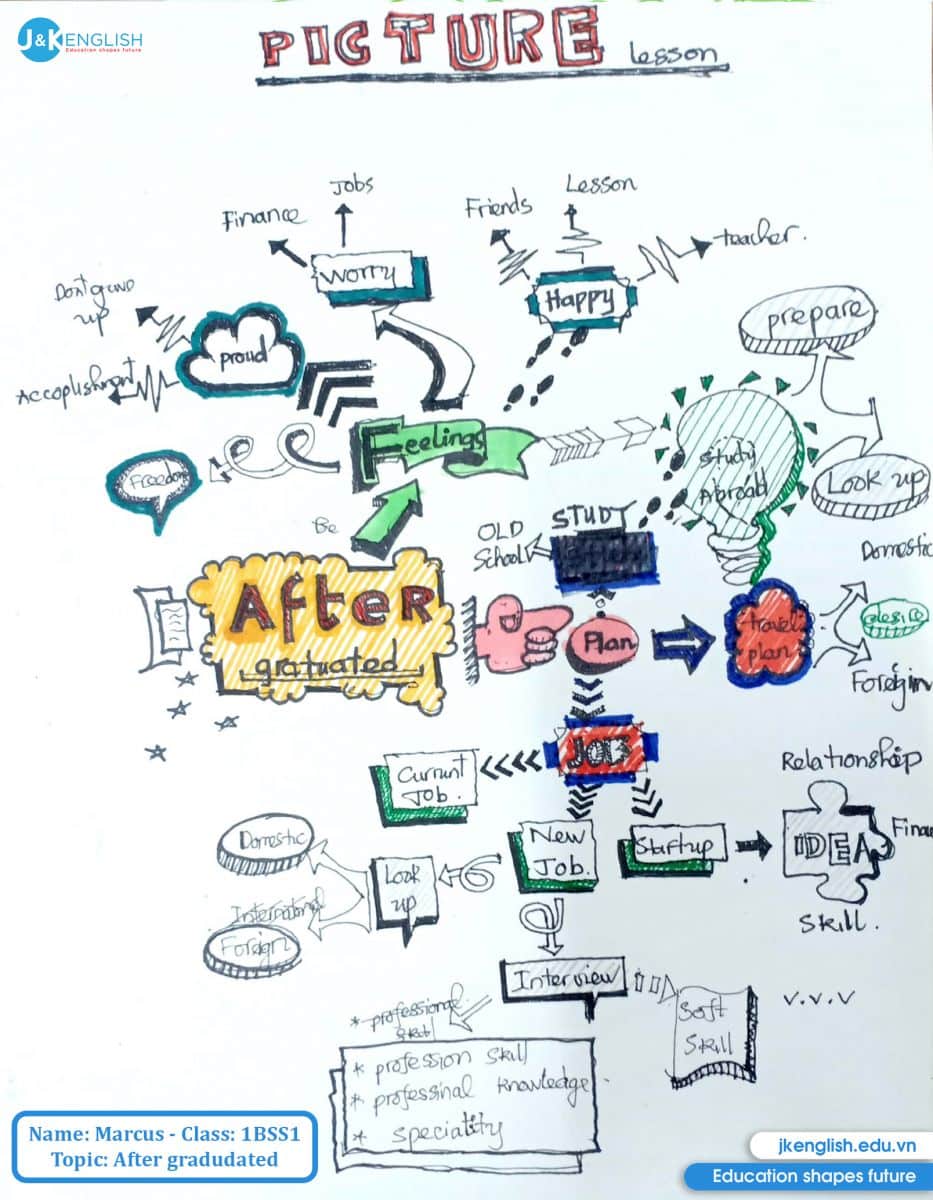 J&K ENGLISH
Education shapes future
PICTURE lesson
Jobs
Finance
Worry
Friends
Lesson
teacher.
Happy
Don't give
up
proud
Accoplishment
Freedom
Feelings
Be
prepare
Look up
Study
Abroad
STUDY
OLD
School
After
gratuated
Plan
travel
plan
Domestic
desire
Foreign
JOB
Current
Job.
New
Job.
Startup
Relationship
IDEA
Finan
Skill.
Look
up
Domestic
International
Foreign
Interview
Soft
Skill
v.v.v
* professional
* profession skill
* professinal knowledge
* speciality
Name: Marcus - Class: 1BSS1
Topic: After gradudated
jkenglish.edu.vn
Education shapes future